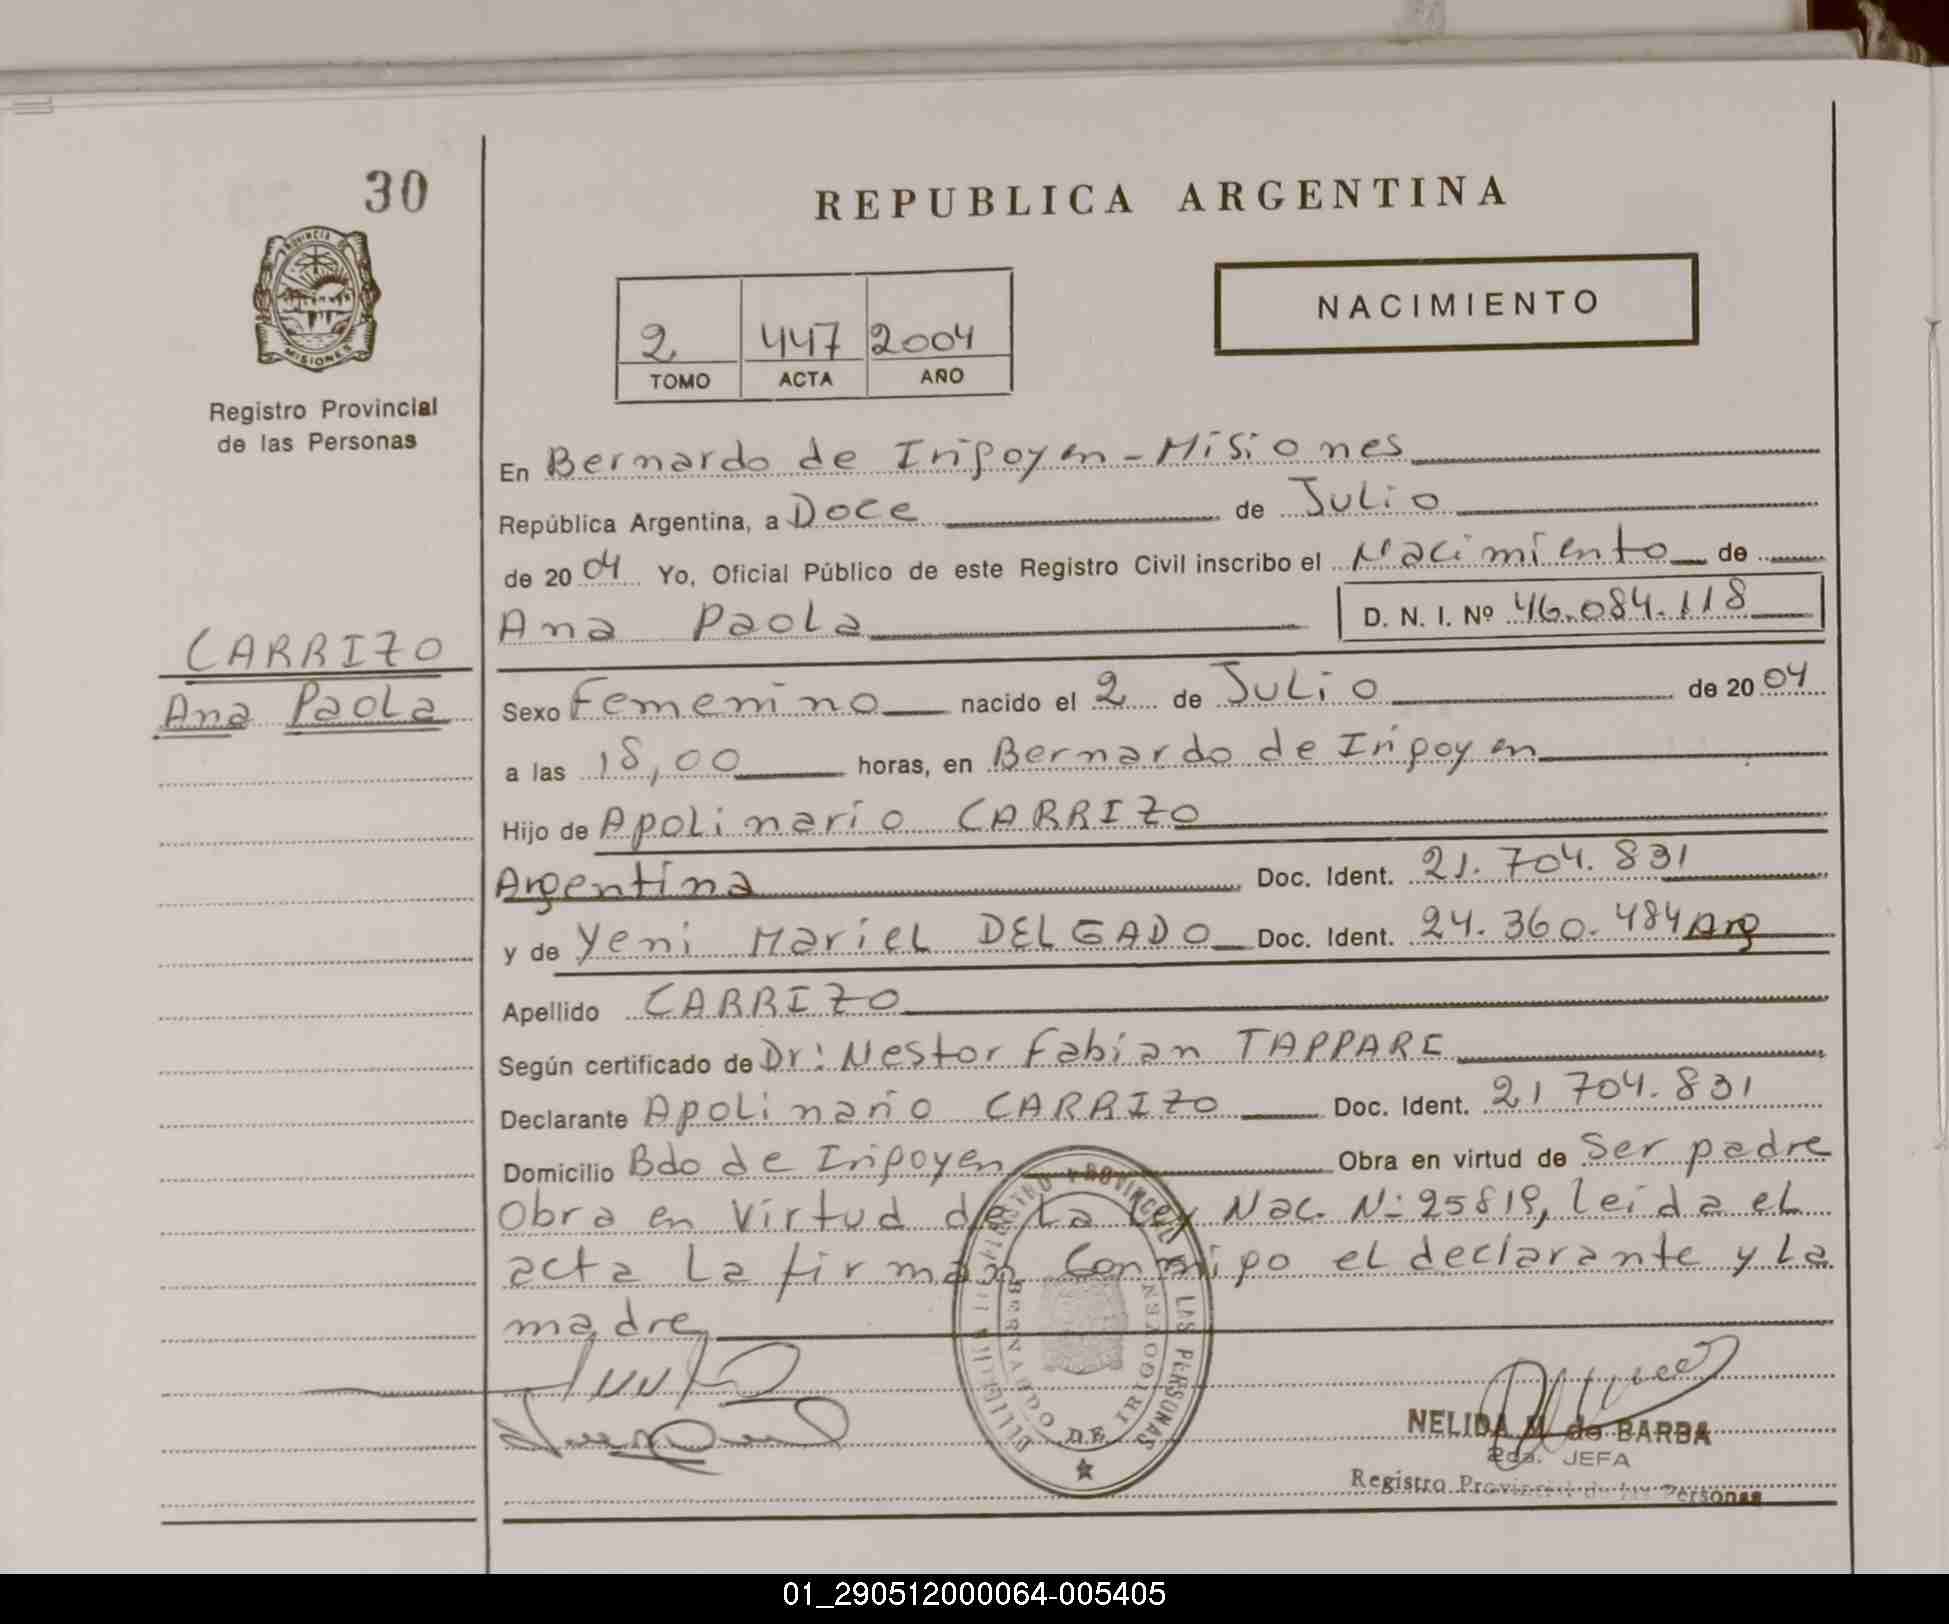 30
PROVINCIA DE
MISIONES
Registro Provincial
de las Personas
CARRIZO
Ana Paola
REPUBLICA ARGENTINA
NACIMIENTO
2 447 2004
TOMO ACTA AÑO
En Bernardo de Irigoyen - Misiones
República Argentina, a Doce de Julio
de 2004 Yo, Oficial Público de este Registro Civil inscribo el Nacimiento de
Ana Paola D. N. I. Nº 46.084.118
Sexo Femenino nacido el 2 de Julio de 2004
a las 18,00 horas, en Bernardo de Irigoyen
Hijo de Apolinario CARRIZO
Argentina Doc. Ident. 21.704.831
y de Yeni Mariel DELGADO Doc. Ident. 24.360.484 Arg
Apellido CARRIZO
Según certificado de Dr: Nestor Fabian TAPPARE
Declarante Apolinario CARRIZO Doc. Ident. 21 704.831
Domicilio Bdo de Irigoyen Obra en virtud de Ser padre
Obra en Virtud de La Ley Nac. N: 25819, leida el
acta La firman Conmigo el declarante y La
madre
REGISTRO PROVINCIAL DE LAS PERSONAS
BERNARDO DE IRIGOYEN
NELIDA M. de BARBA
2da. JEFA
Registro Provincial de las Personas
01_290512000064-005405